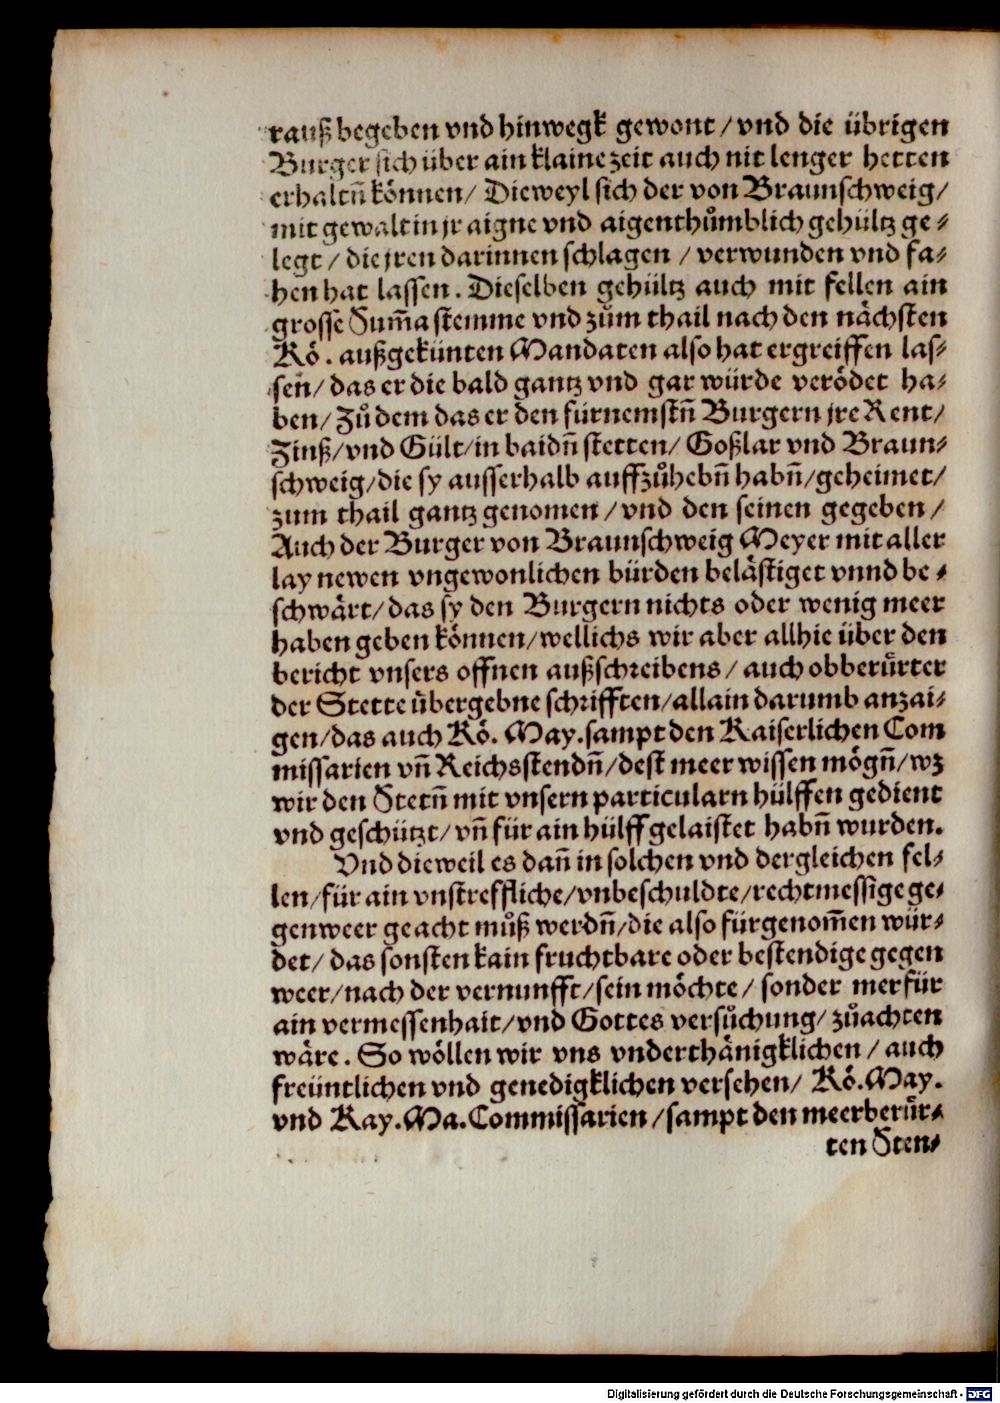 rauß begeben vnd hinwegk gewont / vnd die übrigen
Burger sich über ain klaine zeit auch nit lenger hetten
erhaltñ können / Dieweyl sich der von Braunschweig /
mit gewalt in jr aigne vnd aigenthůmblich gehültz ge⸗
legt / die jren darinnen schlagen / verwunden vnd fa⸗
hen hat lassen. Dieselben gehültz auch mit fellen ain
grosse Sum̃a stemme vnd zům thail nach den nächsten
Kö. außgekünten Mandaten also hat ergreiffen las⸗
sen / das er die bald gantz vnd gar würde verödet ha⸗
ben / Zů dem das er den fürnemstñ Burgern jre Rent /
Zinß / vnd Gült / in baidñ stetten / Goßlar vnd Braun⸗
schweig / die sy ausserhalb auffzůhebñ habñ / geheimet /
zum thail gantz genomen / vnd den seinen gegeben /
Auch der Burger von Braunschweig Meyer mit aller
lay newen vngewonlichen bürden belästiget vnnd be⸗
schwärt / das sy den Burgern nichts oder wenig meer
haben geben können / wellichs wir aber allhie über den
bericht vnsers offnen außschreibens / auch obberůrter
der Stette übergebne schrifften / allain darumb anzai⸗
gen / das auch Kö. May. sampt den Kaiserlichen Com
missarien vñ Reichsstendñ / dest meer wissen mögñ / wz
wir den Stetñ mit vnsern particularn hülffen gedient
vnd geschützt / vñ für ain hülff gelaistet habñ wurden.
Vnd dieweil es dañ in solchen vnd dergleichen fel⸗
len / für ain vnstreffliche / vnbeschuldte / rechtmessige ge⸗
genweer geacht můß werdñ / die also fürgenom̃en wür⸗
det / das sonsten kain fruchtbare oder bestendige gegen
weer / nach der vernunfft / sein möchte / sonder mer für
ain vermessenhait / vnd Gottes versůchung / zůachten
wäre. So wöllen wir vns vnderthänigklichen / auch
freüntlichen vnd genedigklichen versehen / Kö. May.
vnd Kay. Ma. Commissarien / sampt den meerberůr⸗
ten Sten⸗
Digitalisierung gefördert durch die Deutsche Forschungsgemeinschaft - DFG